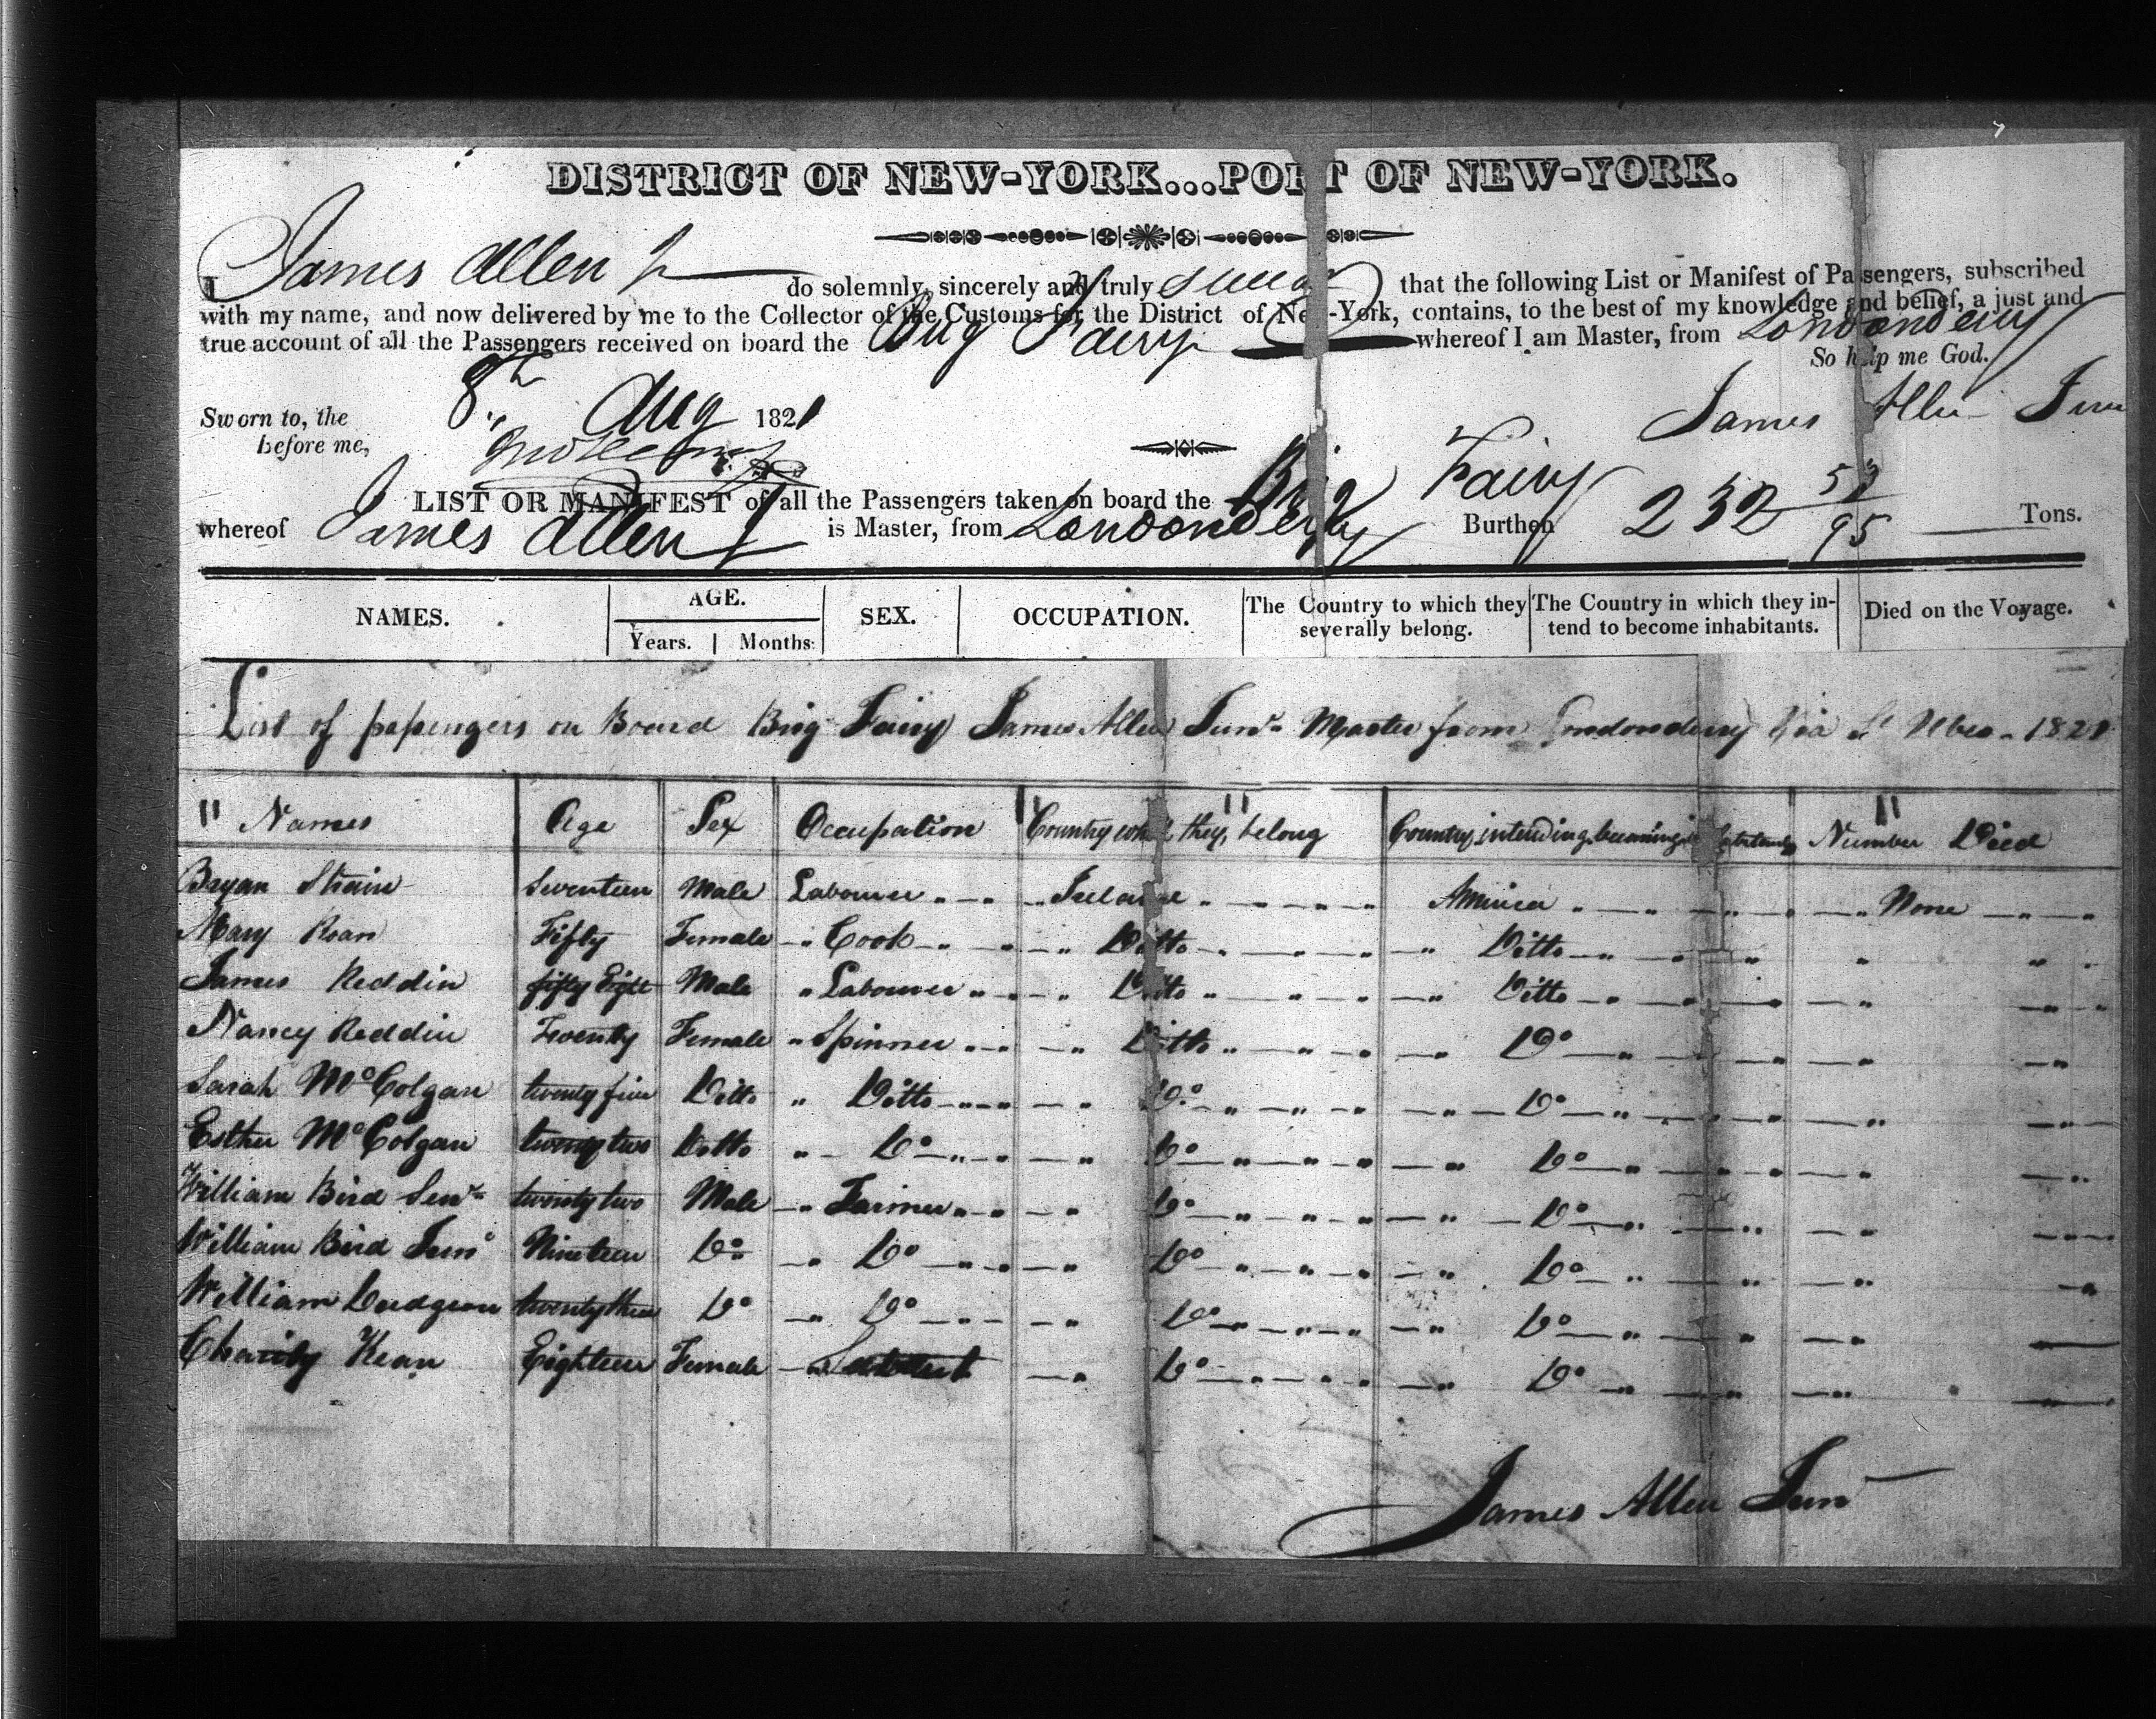 DISTRICT OF NEW-YORK...PORT OF NEW-YORK.
I James Allen Jr do solemnly, sincerely and truly swear that the following List or Manifest of Passengers, subscribed
with my name, and now delivered by me to the Collector of the Customs for the District of New-York, contains, to the best of my knowledge and belief, a just and
true account of all the Passengers received on board the Brig Fairy whereof I am Master, from Londonderry
So help me God.
Sworn to, the 8th Aug 1821 James Allen Junr
before me,
LIST OR MANIFEST of all the Passengers taken on board the Brig Fairy
whereof James Allen Jr is Master, from Londonderry Burthen 232 53/95 Tons.
NAMES. AGE. SEX. OCCUPATION. The Country to which they severally belong. The Country in which they intend to become inhabitants. Died on the Voyage.
Years. Months.
List of passengers on Board Brig Fairy James Allen Junr Master from Londonderry Via St Ubes - 1821
" Names Age Sex Occupation " Country which they belong " Country intending becoming Number Died "
Bryan Strain Seventeen Male Labourer Ireland America None
Mary Roan Fifty Female Cook Ditto Ditto
James Reddin fifty Eight Male Labourer Ditto Ditto
Nancy Reddin Twenty Female Spinner Ditto Do
Sarah McColgan twenty five Ditto Ditto Do Do
Esther McColgan twenty two Ditto Do Do Do
William Bird Senr twenty two Male Farmer Do Do
William Bird Junr Nineteen Do Do Do Do
William Dudgeon twenty three Do Do Do Do
Charity Kean Eighteen Female Do Do
James Allen Junr